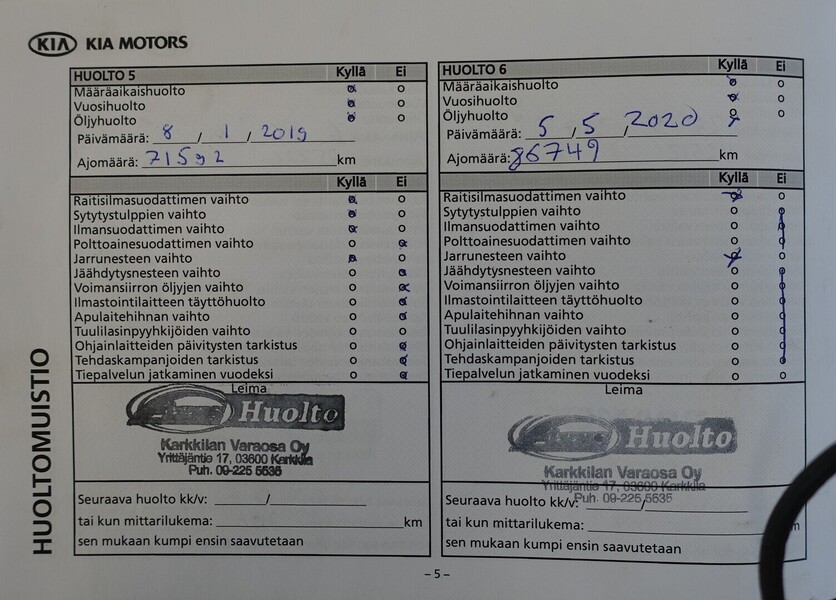 KIA KIA MOTORS
HUOLTO 5 Kyllä Ei
Määräaikaishuolto
Vuosihuolto
Öljyhuolto
Päivämäärä: 8 / 1 / 2019
Ajomäärä: 71592 km
Kyllä Ei
Raitisilmasuodattimen vaihto
Sytytystulppien vaihto
Ilmansuodattimen vaihto
Polttoainesuodattimen vaihto
Jarrunesteen vaihto
Jäähdytysnesteen vaihto
Voimansiirron öljyjen vaihto
Ilmastointilaitteen täyttöhuolto
Apulaitehihnan vaihto
Tuulilasinpyyhkijöiden vaihto
Ohjainlaitteiden päivitysten tarkistus
Tehdaskampanjoiden tarkistus
Tiepalvelun jatkaminen vuodeksi
Leima
Huolto
Karkkilan Varaosa Oy
Yrittäjäntie 17, 03600 Karkkila
Puh. 09-225 5635
Seuraava huolto kk/v: /
tai kun mittarilukema: km
sen mukaan kumpi ensin saavutetaan
HUOLTO 6 Kyllä Ei
Määräaikaishuolto
Vuosihuolto
Öljyhuolto
Päivämäärä: 5 / 5 / 2020
Ajomäärä: 86749 km
Kyllä Ei
Raitisilmasuodattimen vaihto
Sytytystulppien vaihto
Ilmansuodattimen vaihto
Polttoainesuodattimen vaihto
Jarrunesteen vaihto
Jäähdytysnesteen vaihto
Voimansiirron öljyjen vaihto
Ilmastointilaitteen täyttöhuolto
Apulaitehihnan vaihto
Tuulilasinpyyhkijöiden vaihto
Ohjainlaitteiden päivitysten tarkistus
Tehdaskampanjoiden tarkistus
Tiepalvelun jatkaminen vuodeksi
Leima
Huolto
Karkkilan Varaosa Oy
Yrittäjäntie 17, 03600 Karkkila
Puh. 09-225 5635
Seuraava huolto kk/v: /
tai kun mittarilukema: m
sen mukaan kumpi ensin saavutetaan
HUOLTOMUISTIO
- 5 -